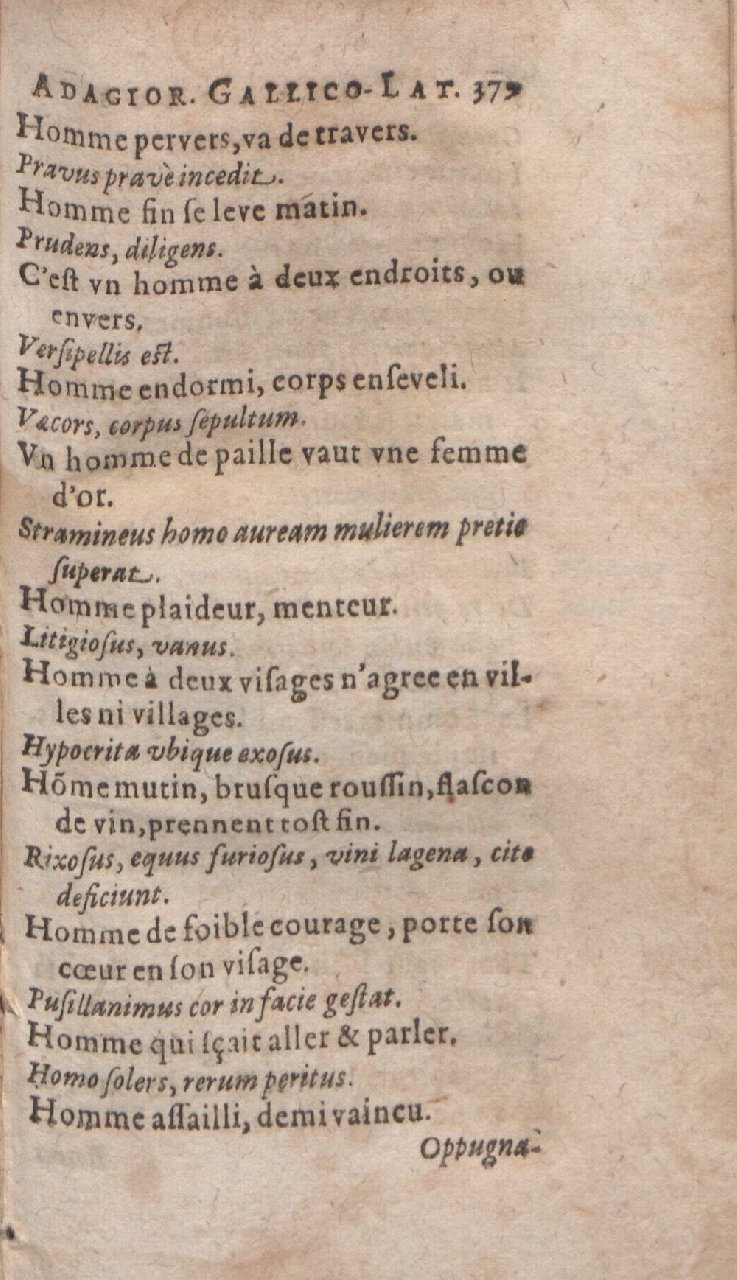 ADAGIOR. GALLICO-LAT. 379
Homme pervers, va de travers.
Pravus pravè incedit.
Homme fin ſe leve matin.
Prudens, diligens.
C'eſt vn homme à deux endroits, ou
envers.
Verſipellis eſt.
Homme endormi, corps enſeveli.
Væcors, corpus ſepultum.
Vn homme de paille vaut vne femme
d'or.
Stramineus homo auream mulierem pretio
ſuperat.
Homme plaideur, menteur.
Litigioſus, vanus.
Homme à deux viſages n'agree en vil-
les ni villages.
Hypocrita vbique exoſus.
Hõme mutin, bruſque rouſſin, flaſcon
de vin, prennent toſt fin.
Rixoſus, equus furioſus, vini lagena, cito
deficiunt.
Homme de foible courage, porte ſon
cœur en ſon viſage.
Puſillanimus cor in facie geſtat.
Homme qui ſçait aller & parler.
Homo ſolers, rerum peritus.
Homme aſſailli, demi vaincu.
Oppugna-